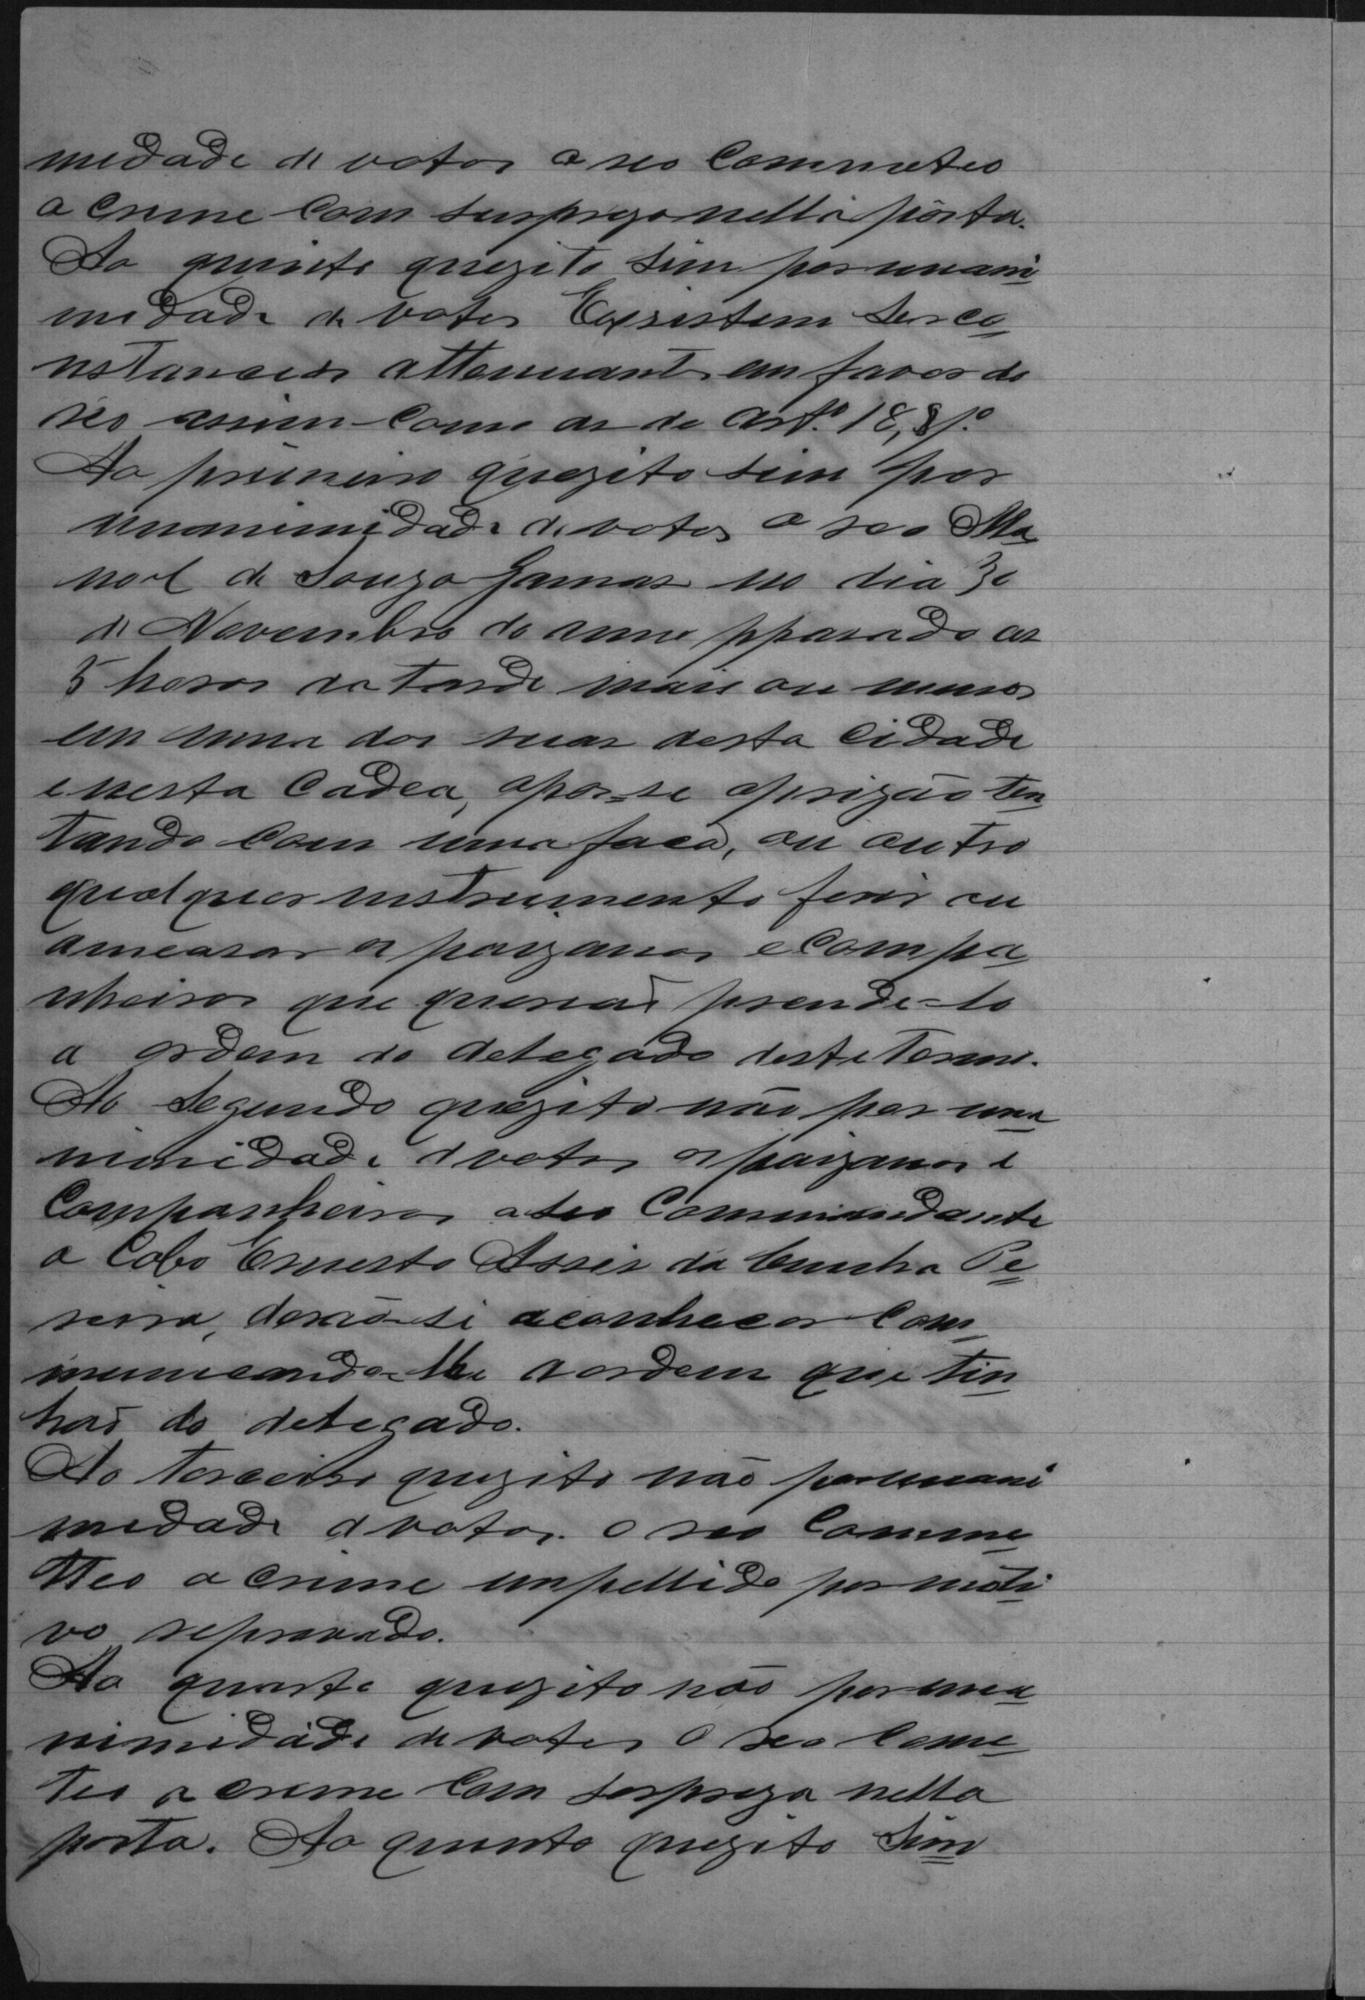 medade de votos o reo Commeteo
o crime com surpreza nella pôsta.
Ao quinto quezito sim por unani
medade de votos Exsistem Serco
nstancias attenuantes em favor do
réo assim como as do art.º 18, § 1.º
Ao primeiro quezito sim por
unanimidade de votos o reo Ma
noel de Souza Gamas no dia 30
de Novembro do anno ppassado as
5 horas da tarde mais ou menos
em uma das ruas desta Cidade
e nesta Cadea, opos-se aprizão ten
tando com uma faca, ou outro
qualquer instrumento ferir ou
ameasar os paizanos e compa
nheiros que queriaõ prende-lo
a ordem do delegado deste Termo.
Ao Segundo quezito não por una
nimidade de votos os paizanos e
Companheiros a seo Commandante
o Cabo Ernesto Assis da Cunha Pe
reira, deraõ-si aconhecer com
municando-lhe a ordem que tin
haõ do delegado.
Ao terceiro quezito não por unani
medade de votos o reo Comme
tteo o crime impellido por moti
vo reprovado.
Ao quarto quezito não por una
nimidade de votos o reo Come
teo o crime com surpreza nella
posta. Ao quinto quezito Sim